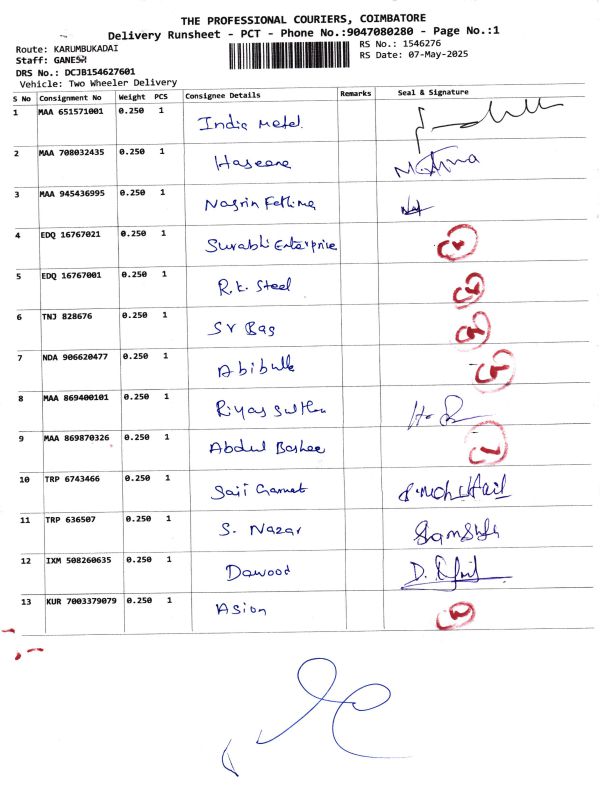 THE PROFESSIONAL COURIERS, COIMBATORE
Delivery Runsheet - PCT - Phone No.:9047080280 - Page No.:1
Route: KARUMBUKADAI
RS No.: 1546276
Staff: GANESH
RS Date: 07-May-2025
DRS No.: DCJB154627601
Vehicle: Two Wheeler Delivery
S No Consignment No Weight PCS Consignee Details Remarks Seal & Signature
1 MAA 651571001 0.250 1 India metal
2 MAA 708032435 0.250 1 Haseena
3 MAA 945436995 0.250 1 Nasrin Fathima
4 EDQ 16767021 0.250 1 Surabhi Enterprise
5 EDQ 16767001 0.250 1 R.K. Steel
6 TNJ 828676 0.250 1 SV Bag
7 NDA 906620477 0.250 1 Abibulla
8 MAA 869400101 0.250 1 Riyas Sulthan
9 MAA 869870326 0.250 1 Abdul Bashee
10 TRP 6743466 0.250 1
11 TRP 636507 0.250 1 S. Nazar
12 IXM 508260635 0.250 1 Dawood
13 KUR 7003379079 0.250 1 Asion